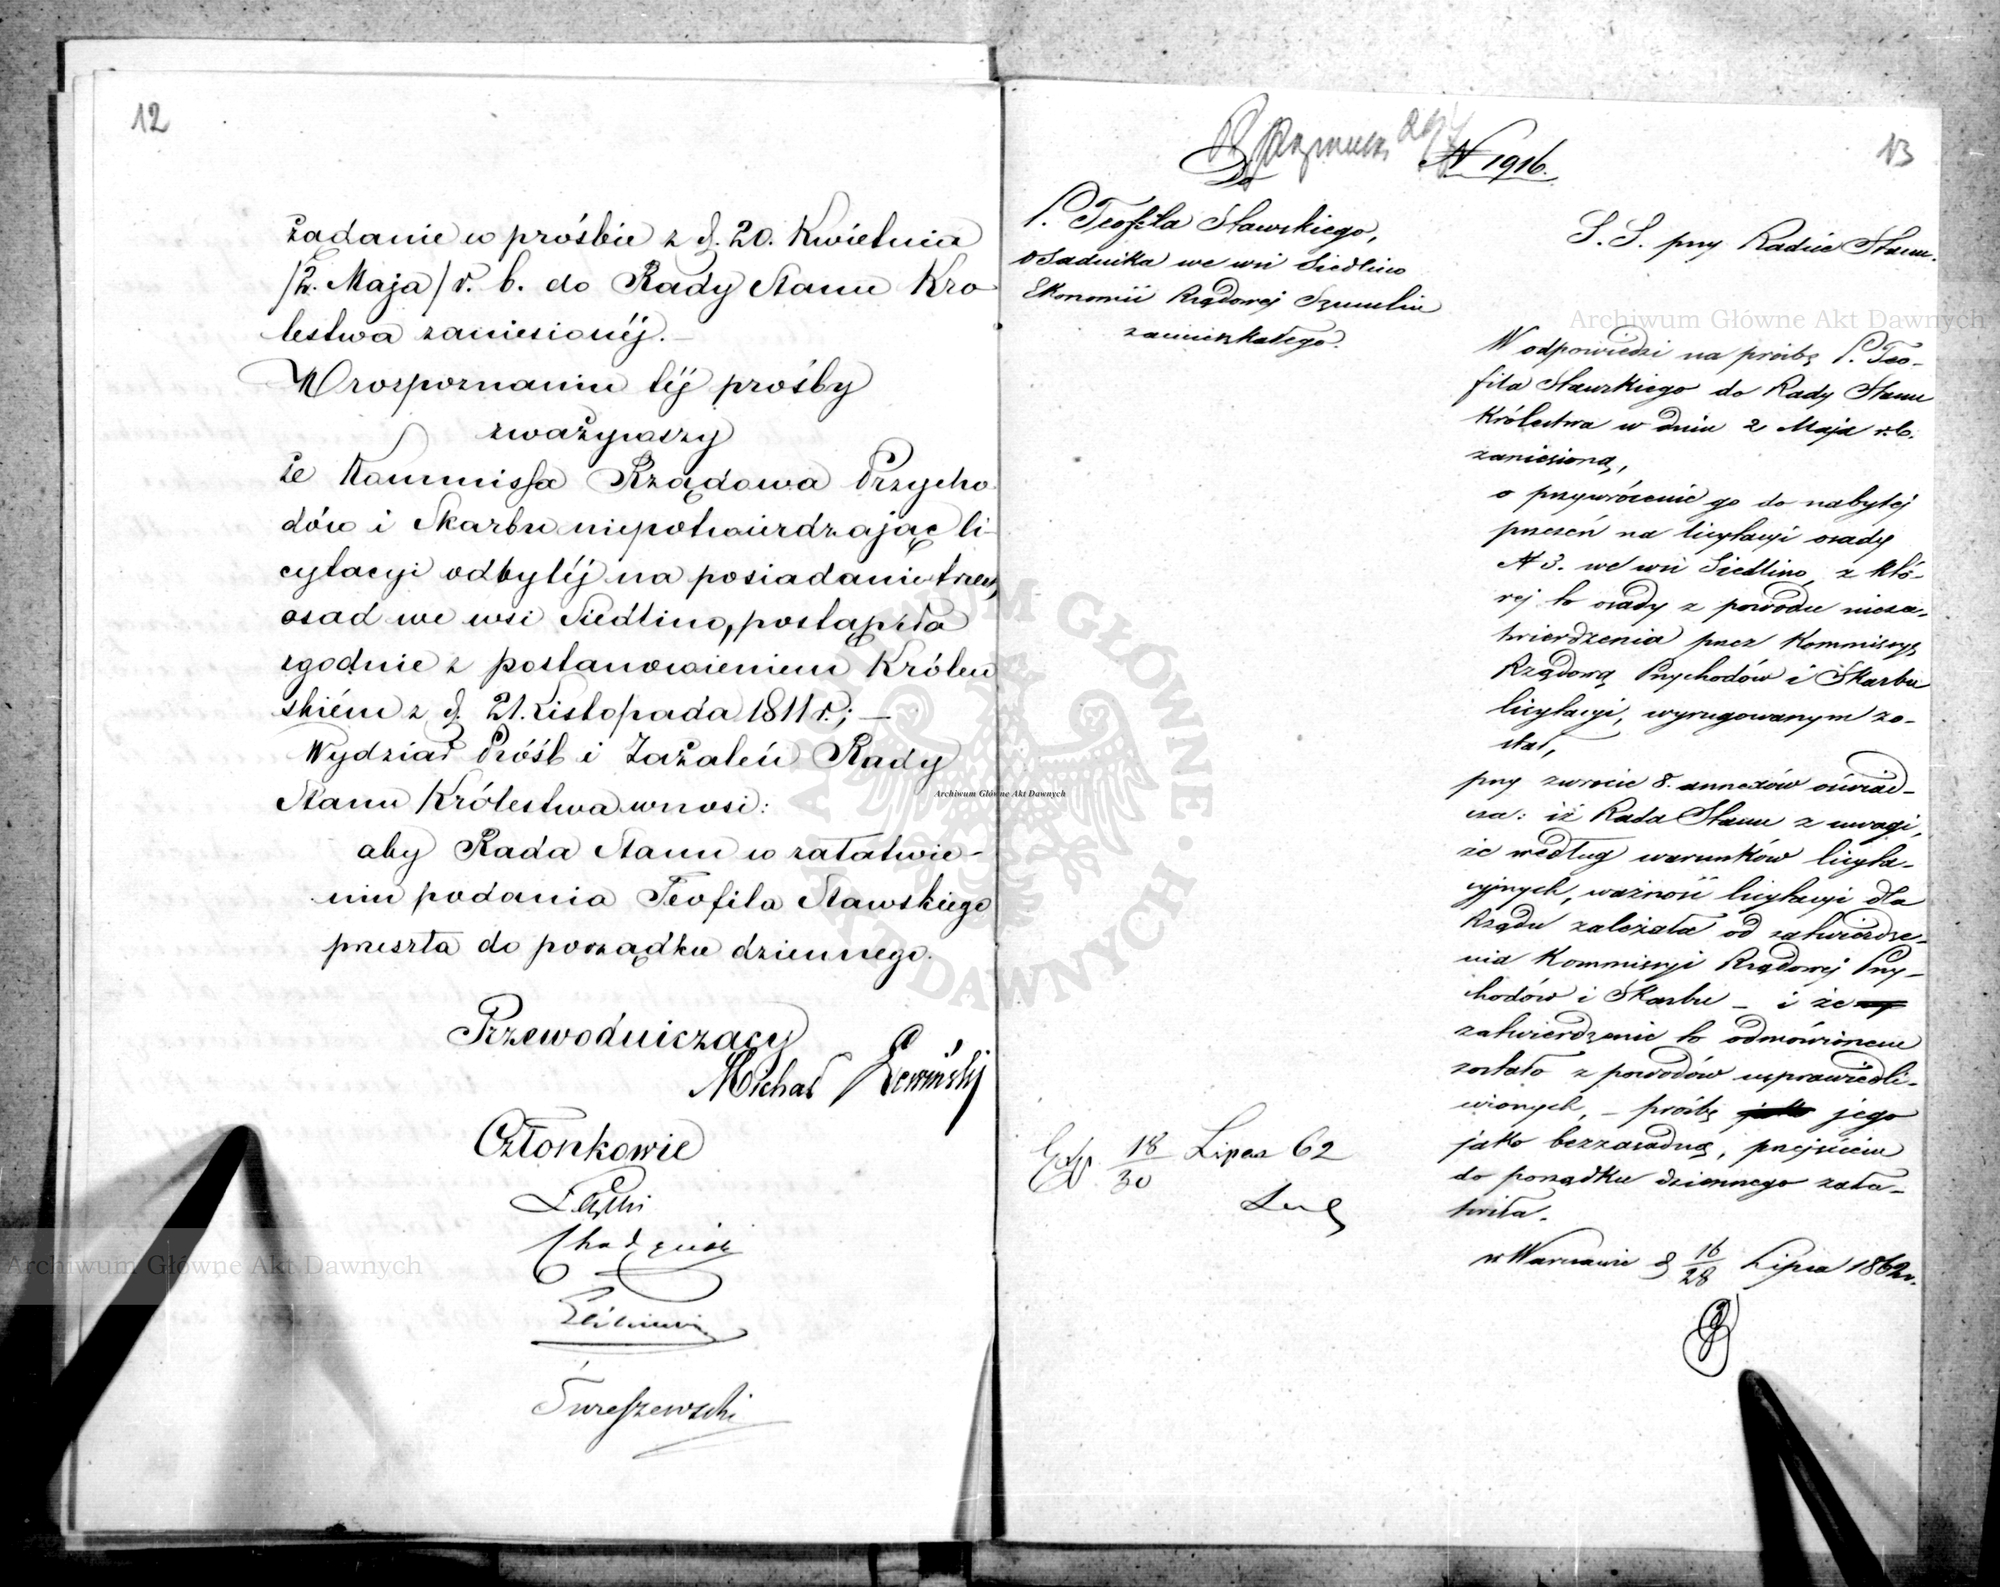 12
żądanie w prośbie z d. 20. Kwietnia
/2. Maja/ r. b. do Rady Stanu Kró
lestwa zaniesionéj.—
W rozpoznaniu téj prośby
zważywszy
że Kommissja Rządowa Przycho
dów i Skarbu niepotwierdzając li-
cytacyi odbytéj na posiadanie trzech
osad we wsi Siedlino, postąpiła
zgodnie z postanowieniem Królew
skiém z d. 21. Listopada 1811 r.; —
Wydział Próśb i Zażaleń Rady
Stanu Królestwa wnosi:
aby Rada Stanu w załatwie-
niu podania Teofila Sławskiego
przeszła do porządku dziennego.
Przewodniczący
Michał
Członkowie
13
N 1916.
Do
P. Teofila Sławskiego,
osadnika we wsi Siedlino
Ekonomii Rządowej
zamieszkałego.
S. S. przy Radzie Stanu.
W odpowiedzi na prośbę P. Teo-
fila Sławskiego do Rady Stanu
Królestwa w dniu 2 Maja r. b.
zaniesioną,
o przywrócenie go do nabytej
przezeń na licytacyi osady
N 3. we wsi Siedlino, z któ-
rej to osady z powodu nieza-
twierdzenia przez Kommissyę
Rządową Przychodów i Skarbu
licytacyi, wyrugowanym zo-
stał,
przy zwrocie 8. annexów oświad-
cza: iż Rada Stanu z uwagi,
że według warunków licyta-
cyjnych, ważność licytacyi dla
Rządu zależała od zatwierdze-
nia Kommissyi Rządowej Przy-
chodów i Skarbu — i że
zatwierdzenie to odmówionem
zostało z powodów usprawiedli-
wionych, — prośbę jego
jako bezzasadną, przejściem
do porządku dziennego zała-
twiła.
w Warszawie d 16/28 Lipca 1862 r.
Exp. 18/30 Lipca 62
Archiwum Główne Akt Dawnych
Archiwum Główne Akt Dawnych
Archiwum Główne Akt Dawnych
ARCHIWUM GŁÓWNE AKT DAWNYCH